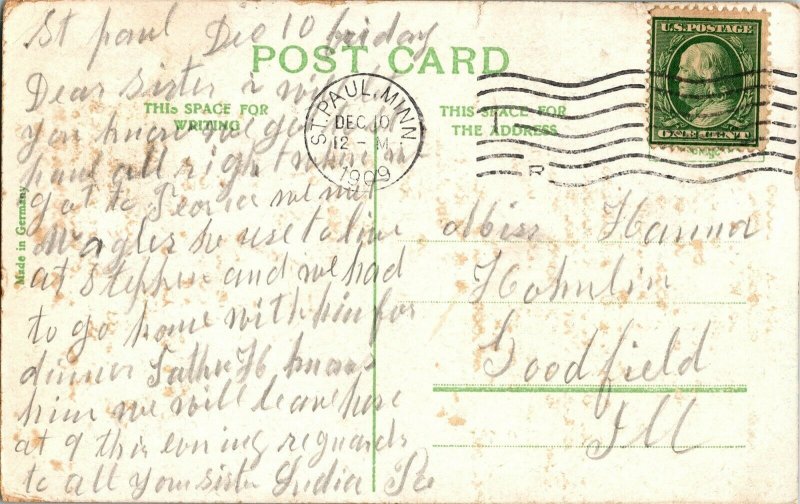 St paul Dec 10 friday
POST CARD
Dear Sister I will let
THIS SPACE FOR
WRITING
you know we got St
paul all right when we
got to Peoria we met
Nagles he use to live
at Stephen and we had
to go home with him for
dinner Father H knows
him we will leave here
at 9 this evning reguards
to all Your sister Lydia
Made in Germany
ST. PAUL, MINN
DEC 10
12 - M
1909
THIS SPACE FOR
THE ADDRESS
U.S. POSTAGE
ONE CENT
R
Miss Hanna
Hohulin
Goodfield
Ill